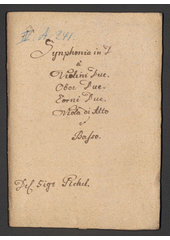 A. 241.
Synphonia in D
à
Violini Due.
Oboe Due.
Corni Due.
Viola di Alto
e
Basso.
Del Sigr Pichel.